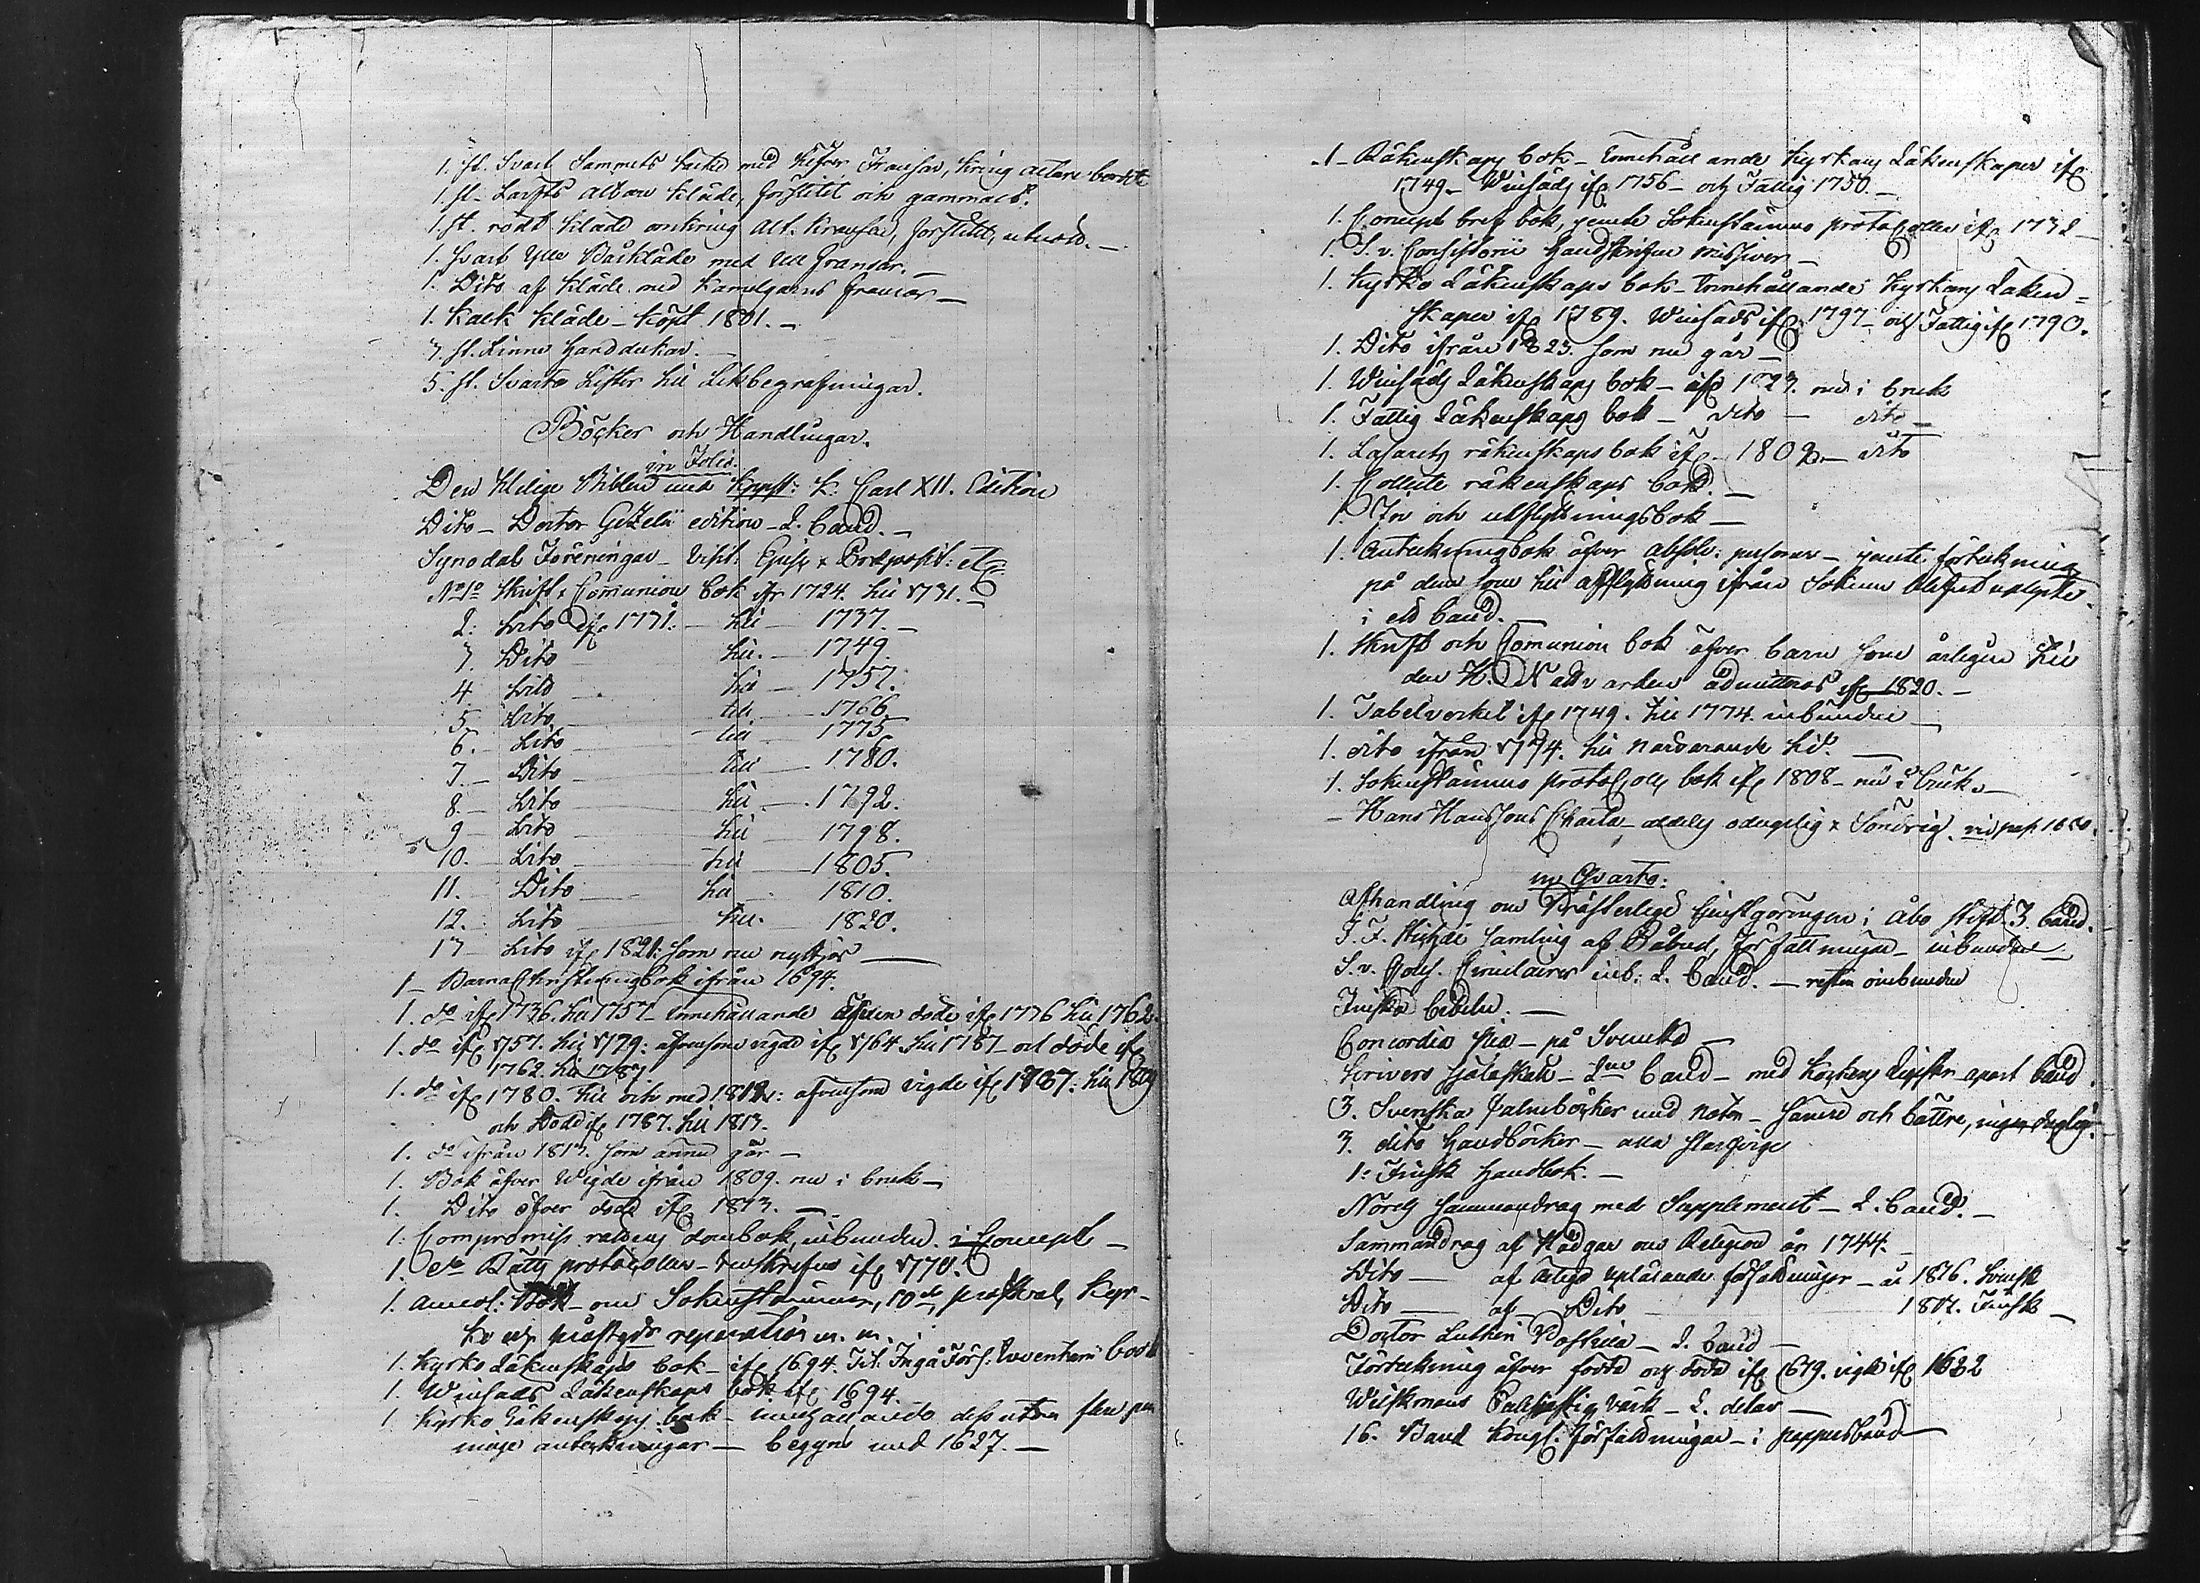 1. st. Svart Sammets täcke med Silfver Fransar, kring altare bordet
1. st. Lärfts altare kläde, förslitit och gammalt.
1. st. rödt kläde omkring Alt. kransen, förslitit, utnött. —
1. Svart Ylle Bårkläde med Ull fransar. —
1. Dito af kläde med Kamelgarns fransar —
1. Kalk kläde — köpt 1801. —
7. st. Linne Handdukar. —
5. st. Svarta Lister till Likbegrafningar.
Böcker och Handlingar.
in Folio.
Den Helige Bibeln med Kppst: K: Carl XII. Edition
Dito — Doctor Gezelii edition — 2. band. —
Synodal Föreningar — Visit: Episc & Præposit: etc
No 1o Skrift & Comunion bok ifr 1724. till 1731. —
2: Dito ifr 1731. — till — 1737. —
3 Dito — till. — 1749.
4 Dito — till — 1757.
5 Dito — till — 1766
6. — Dito — till — 1775
7. — Dito — till — 1780.
8 — Dito — till — 1792.
9 — Dito — till — 1798.
10. — Dito — till — 1805.
11. — Dito — till — 1810.
12. — Dito — till. 1820.
13 — Dito ifr 1821. som nu nyttjas —
1 — Barna Christningbok ifrån 1694.
1. do ifr 1736. till 1757 — innehållande äfven döde ifr 1736 till 1762.
1. do ifr 1757. till 1779: äfvensom vigde ifr 1764. till 1787 — och döde ifr
1762. till 1787
1. do ifr 1780. till och med 1812: äfvensom vigde ifr 1787: till 1809
och Döde ifr 1787. till 1813.
1. do ifrån 1813. som ännu går —
1. Bok öfver Wigde ifrån 1809. nu i bruk —
1. Dito öfver döde ifr 1813. —
1. Compromiss rättens dombok, inbunden i Concept —
1. do Rätts protocoller — renskrifne ifr 1770.
1. Annot: Bok — om Sokenstämmor, 10de, prästval, Kyr-
ko och prästgårds reparation m. m.
1. Kyrko Räkenskaps bok — ifr 1694. Inventarii bok
1. Winsäds Räkenskaps bok ifr 1694.
1. Kyrko Räkenskaps bok — innehållande dessutom flere
antekningar — begyns med 1627. —
1 — Räkenskaps bok — innehållande Kyrkans Räkenskaper ifr
1749 — Winsäds ifr 1756 — och Fattig 1750. —
1. Concept bref bok, jemte Sokenstämmo protocoller ifr 1732 —
1. S. v. Consistorii handskrifne missiver —
1. Kyrko Räkenskaps bok — innehållande Kyrkans Räken=
skaper ifr 1789. Winsäds ifr 1797 — och Fattig ifr 1790.
1. Dito ifrån 1823. som nu går —
1. Winsäds Räkenskaps bok — ifr 1823. nu i bruk
1. Fattig Räkenskaps bok — dito — dito —
1. Lazarets räkenskaps bok ifr — 1802 — dito
1. Collecte räkenskaps bok. —
1. In och utflyttningsbok —
1. Anteckningbok öfver absolv: personer — jemte förtekning
på dem som till afflyttning ifrån Soknen
i ett band. —
1. Skrift och Comunion bok öfver barn som årligen till
den H. Nattvarden admitteras ifr 1820. —
1. Tabelverket ifr 1749. till 1774. inbunden —
1. dito ifrån 1774. till närvarande tid. —
1. Sokenstämmo protocolls bok ifr 1808 — nu i bruk. —
— Hans Hanssons Charta — aldeles oduglig & Söndrig.
in Qvarto:
Afhandling om Prästerliga tjenstgöringen i Åbo Stift 3. band.
Samling af Påbud, Författningar — inbundne —
S. v. Cons. Circulairer inb: 2. band. — resten oinbundne
Finska bibeln. —
Concordia Pia — på Svenska —
Scrivers Själaskatt — band — med Registr apart band.
3. Svenska Psalmböcker med noter — sämre och bättre, ingen duglig.
3. dito Handböcker — alla
1: Finsk Handbok. —
Sammandrag med Supplement — 2. band. —
Sammandrag af Stadgar om Religion år 1744. —
Dito — af årliga uplåsande författningar — år 1816. Svensk
Dito — af — Dito — 1807. Finsk —
Doctor Lutheri Postilla — 2. band —
Förtekning öfver födde och döde ifr 1679. vigde ifr 1682
Wilskmans Ecclesiastiq värk — 2. delar —
16. Band Kongl. författningar — i pappersband —